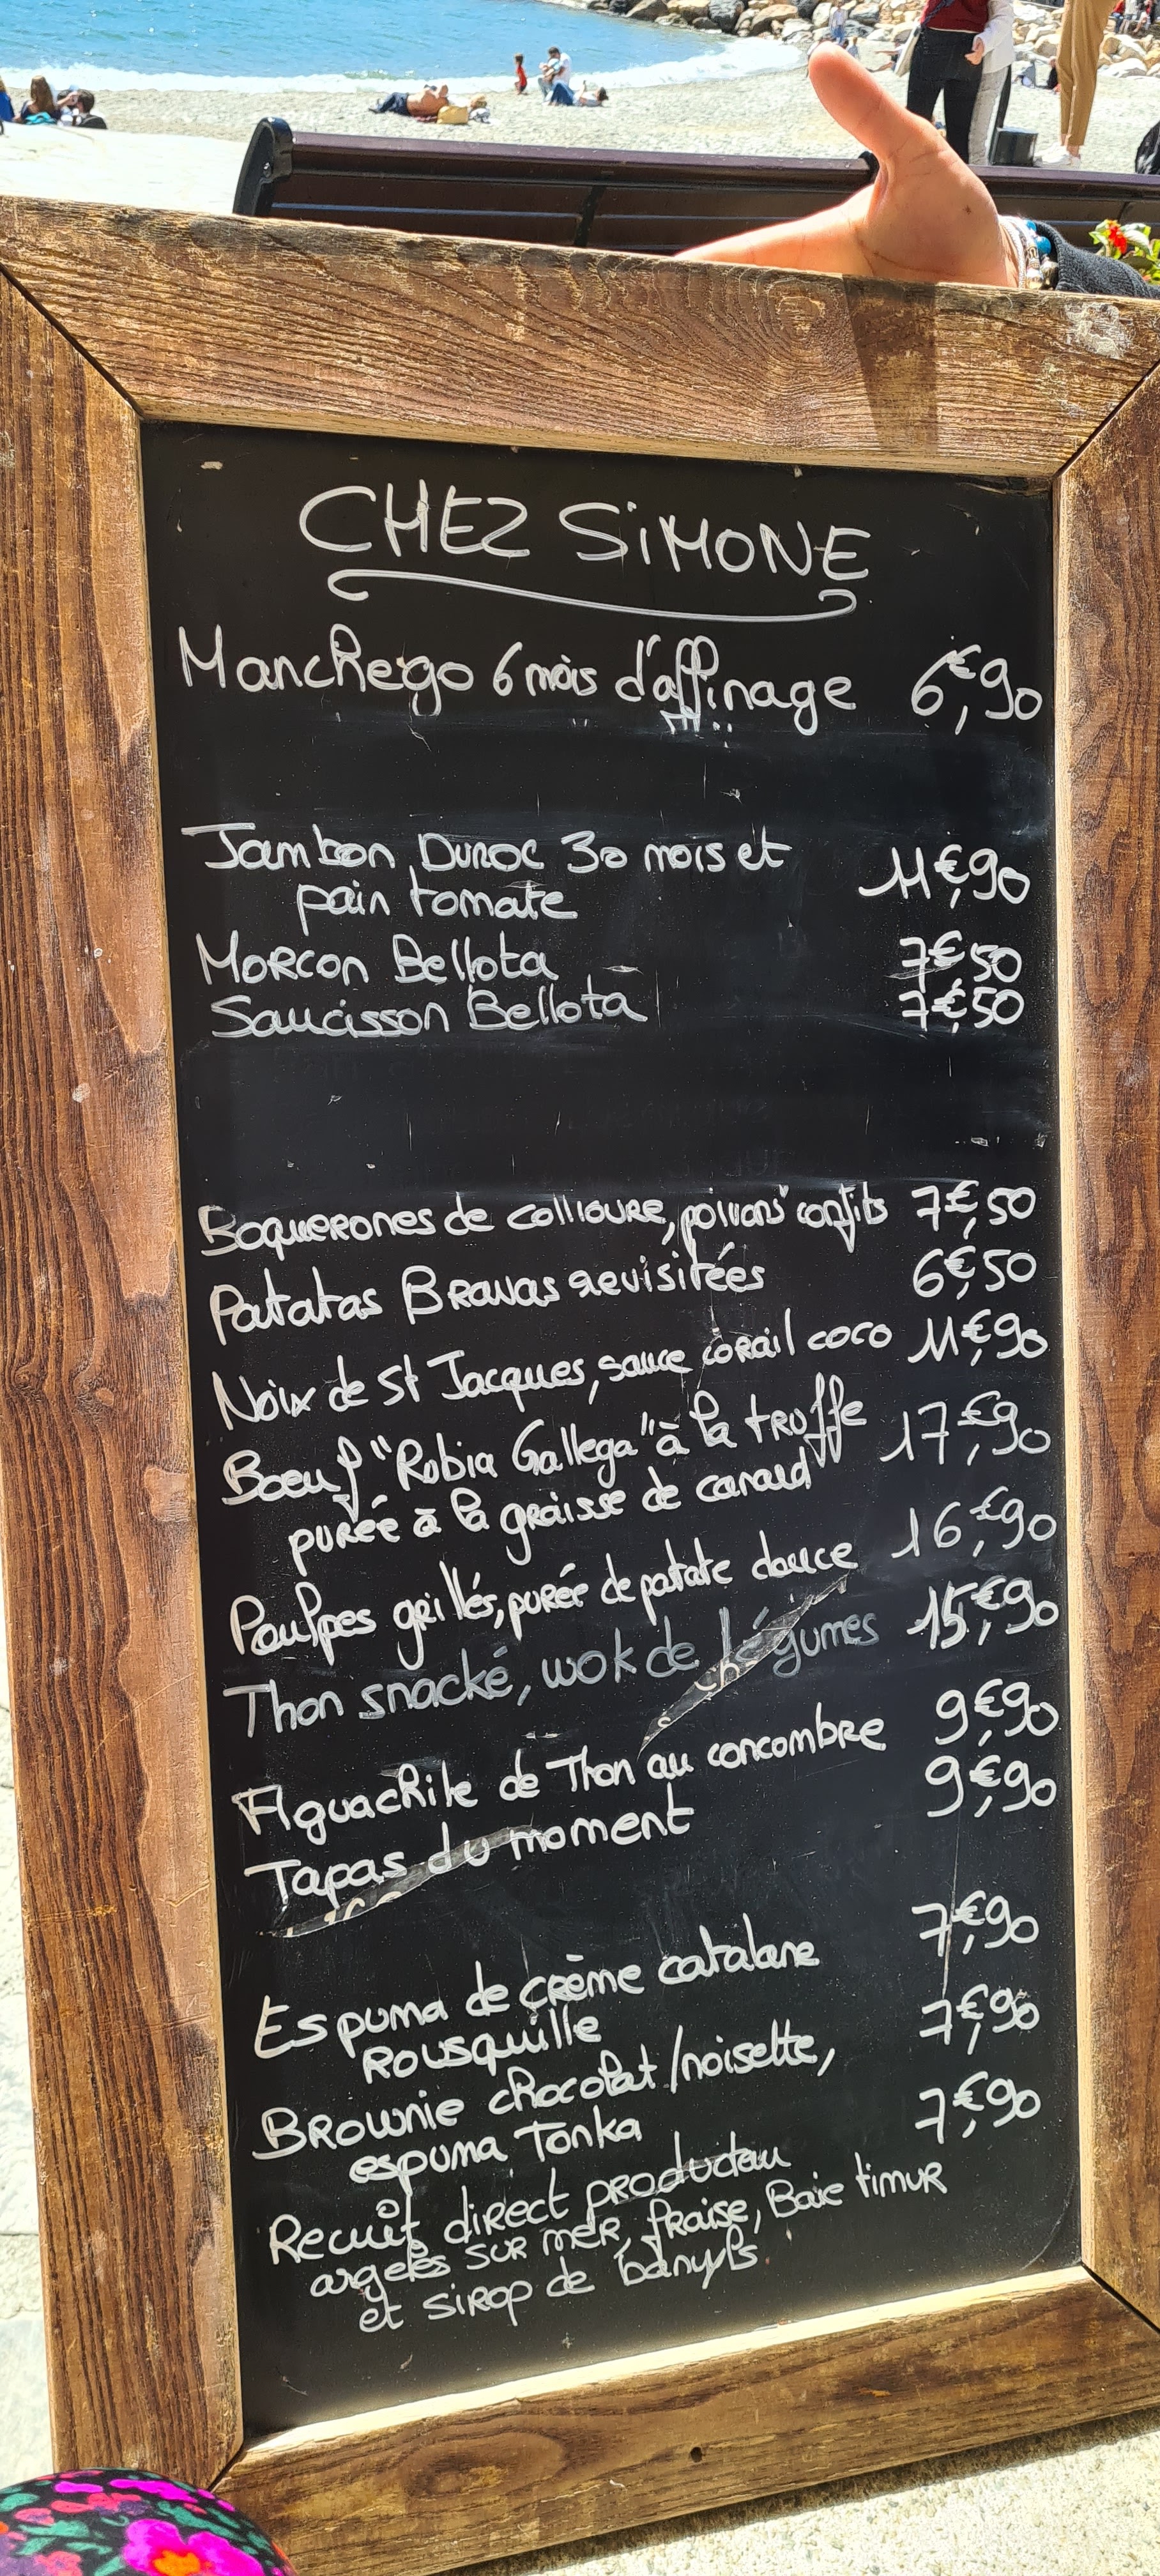 CHEZ SIMONE
Manchego 6 mois d'affinage 6€,90
Jambon Duroc 30 mois et 11€,90
pain tomate
Morcon Bellota 7€,50
Saucisson Bellota 7€,50
Boquerones de collioure, poivrons confits 7€,50
Patatas Bravas revisitées 6€,50
Noix de St Jacques, sauce corail coco 11€,90
Boeuf "Rubia Gallega" à la truffe 17€,90
purée à la graisse de canard
Poulpes grillés, purée de patate douce 16€,90
Thon snacké, wok de légumes 15€,90
Aguachile de Thon au concombre 9€,90
Tapas du moment 9€,90
Espuma de crème catalane 7€,90
Rousquille
Brownie chocolat/noisette, 7€,90
espuma Tonka
Recuit direct producteur 7€,90
argelès sur mer, fraise, Baie timur
et sirop de banyuls